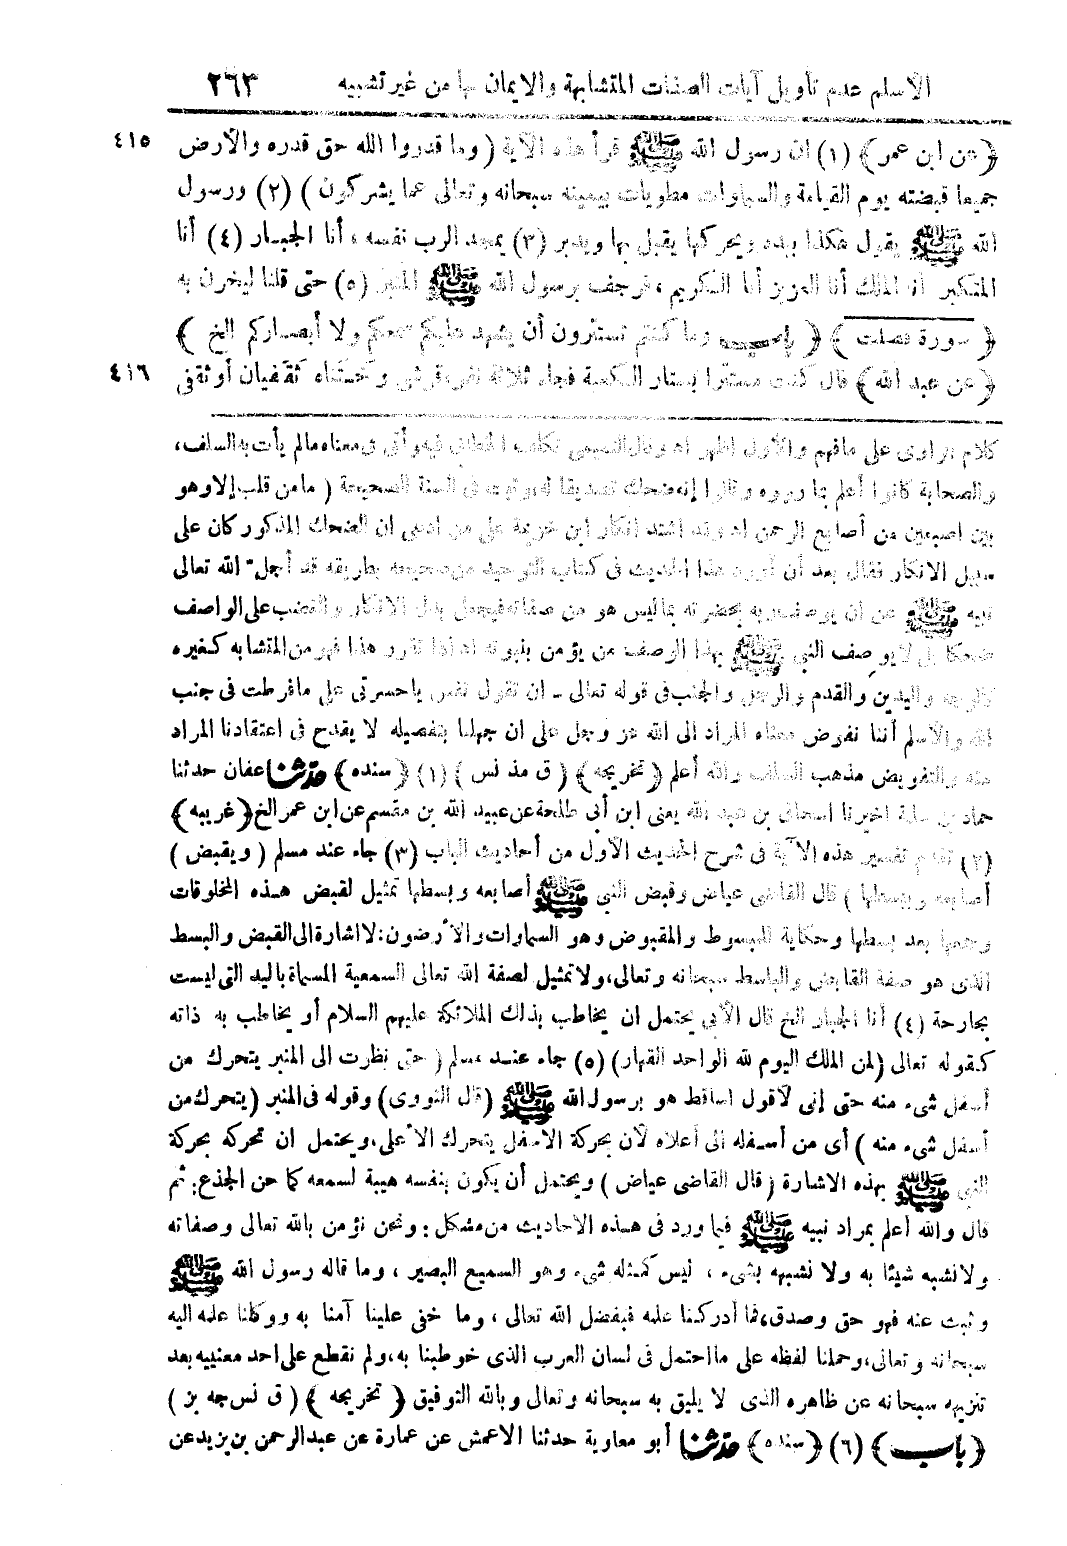 الأسلم عدم تأويل آيات الصفات المتشابهة والإيمان بها من غير تشبيه ٢٦٣
﴿عن ابن عمر﴾ (١) ان رسول الله ﷺ قرأ هذه الآية (وما قدروا الله حق قدره والأرض ٤١٥
جميعا قبضته يوم القيامة والسماوات مطويات بيمينه سبحانه وتعالى عما يشركون) (٢) ورسول
الله ﷺ يقول هكذا بيده ويحركها يقبل بها ويدبر (٣) يمجد الرب نفسه، أنا الجبار (٤) أنا
المتكبر أنا الملك أنا العزيز أنا الكريم، فرجف برسول الله ﷺ المنبر (٥) حتى قلنا ليخرن به
﴿سورة فصلت﴾ ﴿باب وما كنتم تستترون أن يشهد عليكم سمعكم ولا أبصاركم الخ﴾
﴿عن عبد الله﴾ قال كنت مستترا بستار الكعبة فجاء ثلاثة نفر قرشى وختناه ثقفيان أو ثقفى ٤١٦
كلام الراوى على مافهم والأول أظهر اه وقال التميمى تكلف الخطابى فيه وأتى فى معناه مالم يأت به السلف،
والصحابة كانوا أعلم بما رووه وقالوا إنه ضحك تصديقا له وثبت فى السنة الصحيحة (مامن قلب إلا وهو
بين اصبعين من أصابع الرحمن اه وقد اشتد انكار ابن خزيمة على من ادعى ان الضحك المذكور كان على
سبيل الانكار فقال بعد أن أورد هذا الحديث فى كتاب التوحيد من صحيحه بطريقه قد أجل الله تعالى
نبيه ﷺ عن ان يوصف ربه بحضرته بما ليس هو من صفاته فيجعل بدل الانكار والغضب على الواصف
ضحكا بل لا يوصف النبى ﷺ بهذا الوصف من يؤمن بنبوته اه اذا تقرر هذا فهو من المتشابه كغيره
كالوجه واليدين والقدم والرجل والجنب فى قوله تعالى - ان تقول نفس ياحسرتى على مافرطت فى جنب
الله والأسلم أننا نفوض معناه المراد الى الله عز وجل على ان جهلنا بتفصيله لا يقدح فى اعتقادنا المراد
منه والتفويض مذهب السلف والله أعلم ﴿تخريجه﴾ (ق مذ نس) (١) ﴿سنده﴾ حدثنا عفان حدثنا
حماد بن سلمة اخبرنا اسحاق بن عبد الله يعنى ابن أبى طلحة عن عبيد الله بن مقسم عن ابن عمر الخ ﴿غريبه﴾
(٢) تقدم تفسير هذه الآية فى شرح الحديث الأول من أحاديث الباب (٣) جاء عند مسلم (ويقبض
أصابعه ويبسطها) قال القاضى عياض وقبض النبى ﷺ أصابعه وبسطها تمثيل لقبض هذه المخلوقات
وجمعها بعد بسطها وحكاية للمبسوط والمقبوض وهو السماوات والأرضون: لا اشارة الى القبض والبسط
الذى هو صفة القابض والباسط سبحانه وتعالى، ولا تمثيل لصفة الله تعالى السمعية المسماة باليد التى ليست
بجارحة (٤) أنا الجبار الخ قال الأبى يحتمل ان يخاطب بذلك الملائكة عليهم السلام أو يخاطب به ذاته
كقوله تعالى (لمن الملك اليوم لله الواحد القهار) (٥) جاء عند مسلم (حتى نظرت الى المنبر يتحرك من
أسفل شىء منه حتى إنى لأقول اساقط هو برسول الله ﷺ (قال النووى) وقوله فى المنبر (يتحرك من
أسفل شىء منه) أى من أسفله الى أعلاه لأن بحركة الاسفل يتحرك الأعلى، ويحتمل ان تحركه بحركة
النبى ﷺ بهذه الاشارة (قال القاضى عياض) ويحتمل أن يكون بنفسه هيبة لسمعه كما حن الجذع: ثم
قال والله أعلم بمراد نبيه ﷺ فيما ورد فى هذه الاحاديث من مشكل: ونحن نؤمن بالله تعالى وصفاته
ولا نشبه شيئا به ولا نشبهه بشىء، ليس كمثله شىء وهو السميع البصير، وما قاله رسول الله ﷺ
وثبت عنه فهو حق وصدق، فما أدركنا علمه فبفضل الله تعالى، وما خفى علينا آمنا به ووكلنا علمه اليه
سبحانه وتعالى، وحملنا لفظه على ما احتمل فى لسان العرب الذى خوطبنا به، ولم نقطع على احد معنييه بعد
تنزيهه سبحانه عن ظاهره الذى لا يليق به سبحانه وتعالى وبالله التوفيق ﴿تخريجه﴾ (ق نس جه بز)
﴿باب﴾ (٦) ﴿سنده﴾ حدثنا أبو معاوية حدثنا الاعمش عن عمارة عن عبد الرحمن بن يزيد عن